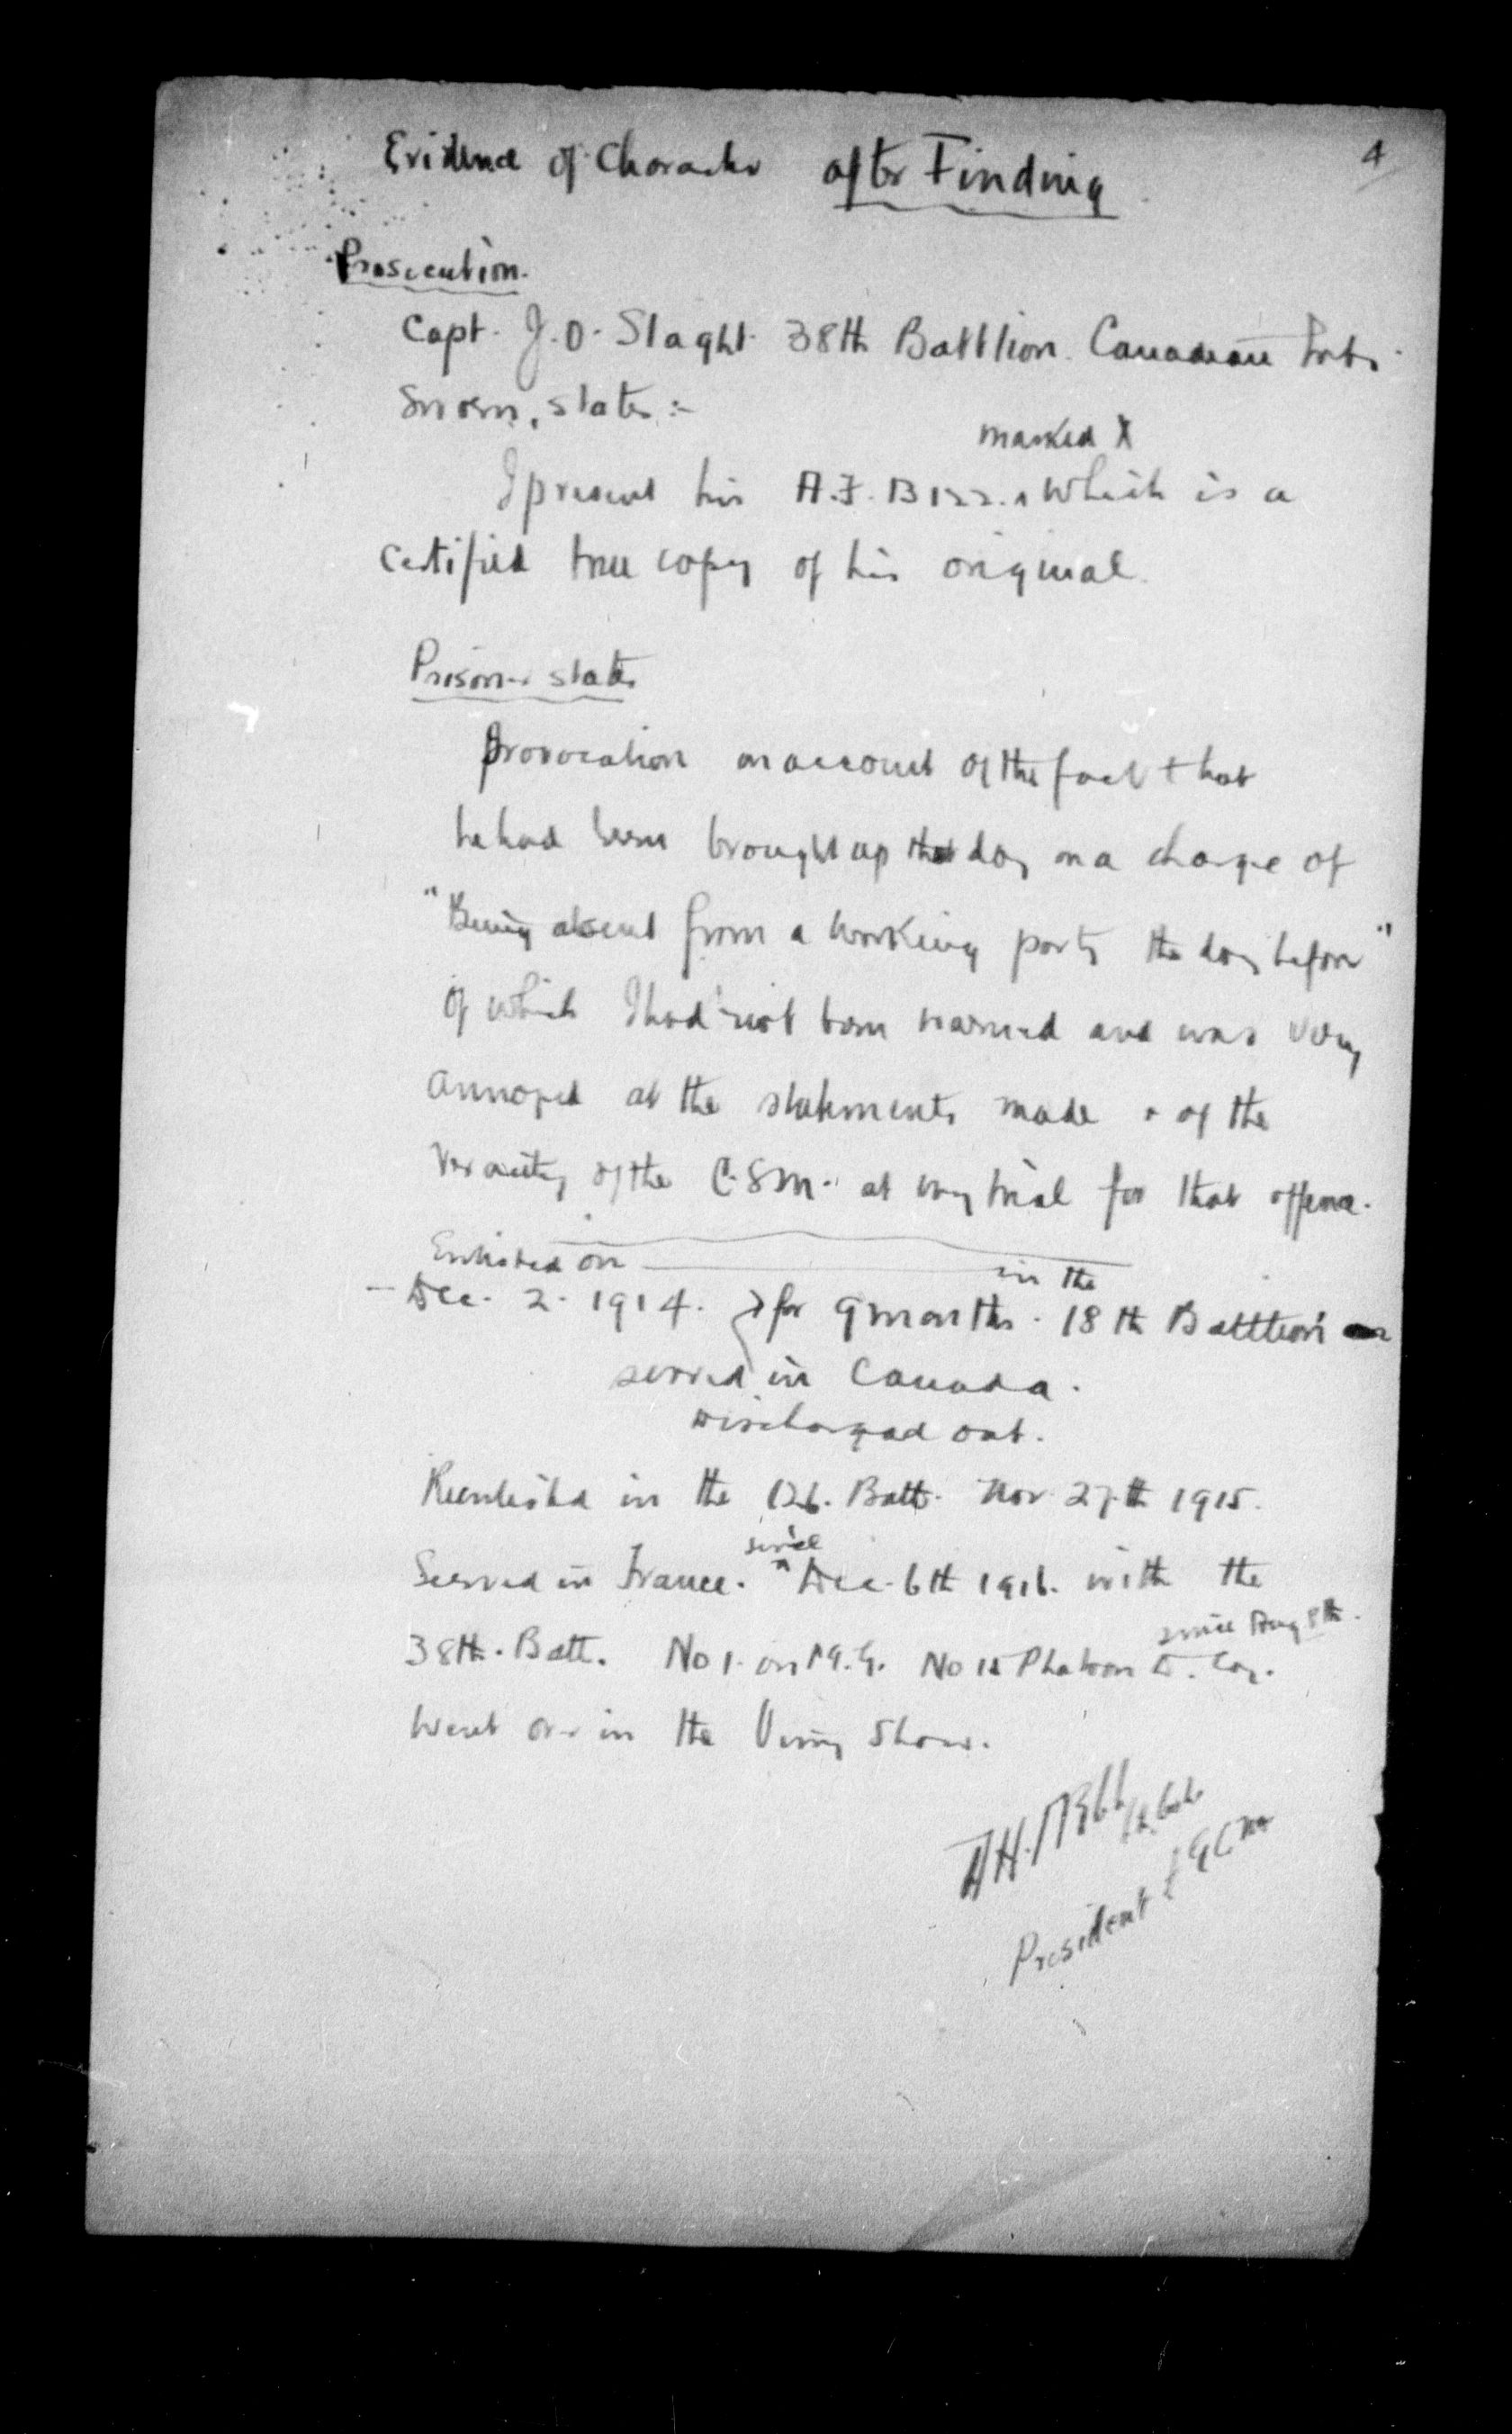 4
Evidence of Character after Finding
Prosecution.
Capt. J.O. Slaght 38th Battlion. Canadian Inf.
Sworn, states :-
marked X
I present his A.F. B122. ^ which is a
certified true copy of his original.
Prisoner states
Provocation on account of the fact that
he had been brought up that day on a charge of
"Being absent from a working party the day before"
of which I had not been warned and was very
annoyed at the statements made & of the
veracity of the C.S.M. at my trial for that offence.
Enlisted on
in the
- Dec. 2. 1914. for 9 months. 18th Battlion
served in Canada.
Discharged out.
Reenlisted in the 126. Batt. Nov. 27th 1915.
since
Served in France. ^ Dec. 6th 1916. with the
since Aug 8th.
38th. Batt. No 1. on M.G. No 15 Platoon D. Coy.
Went over in the Vimy Show.
President FGCM